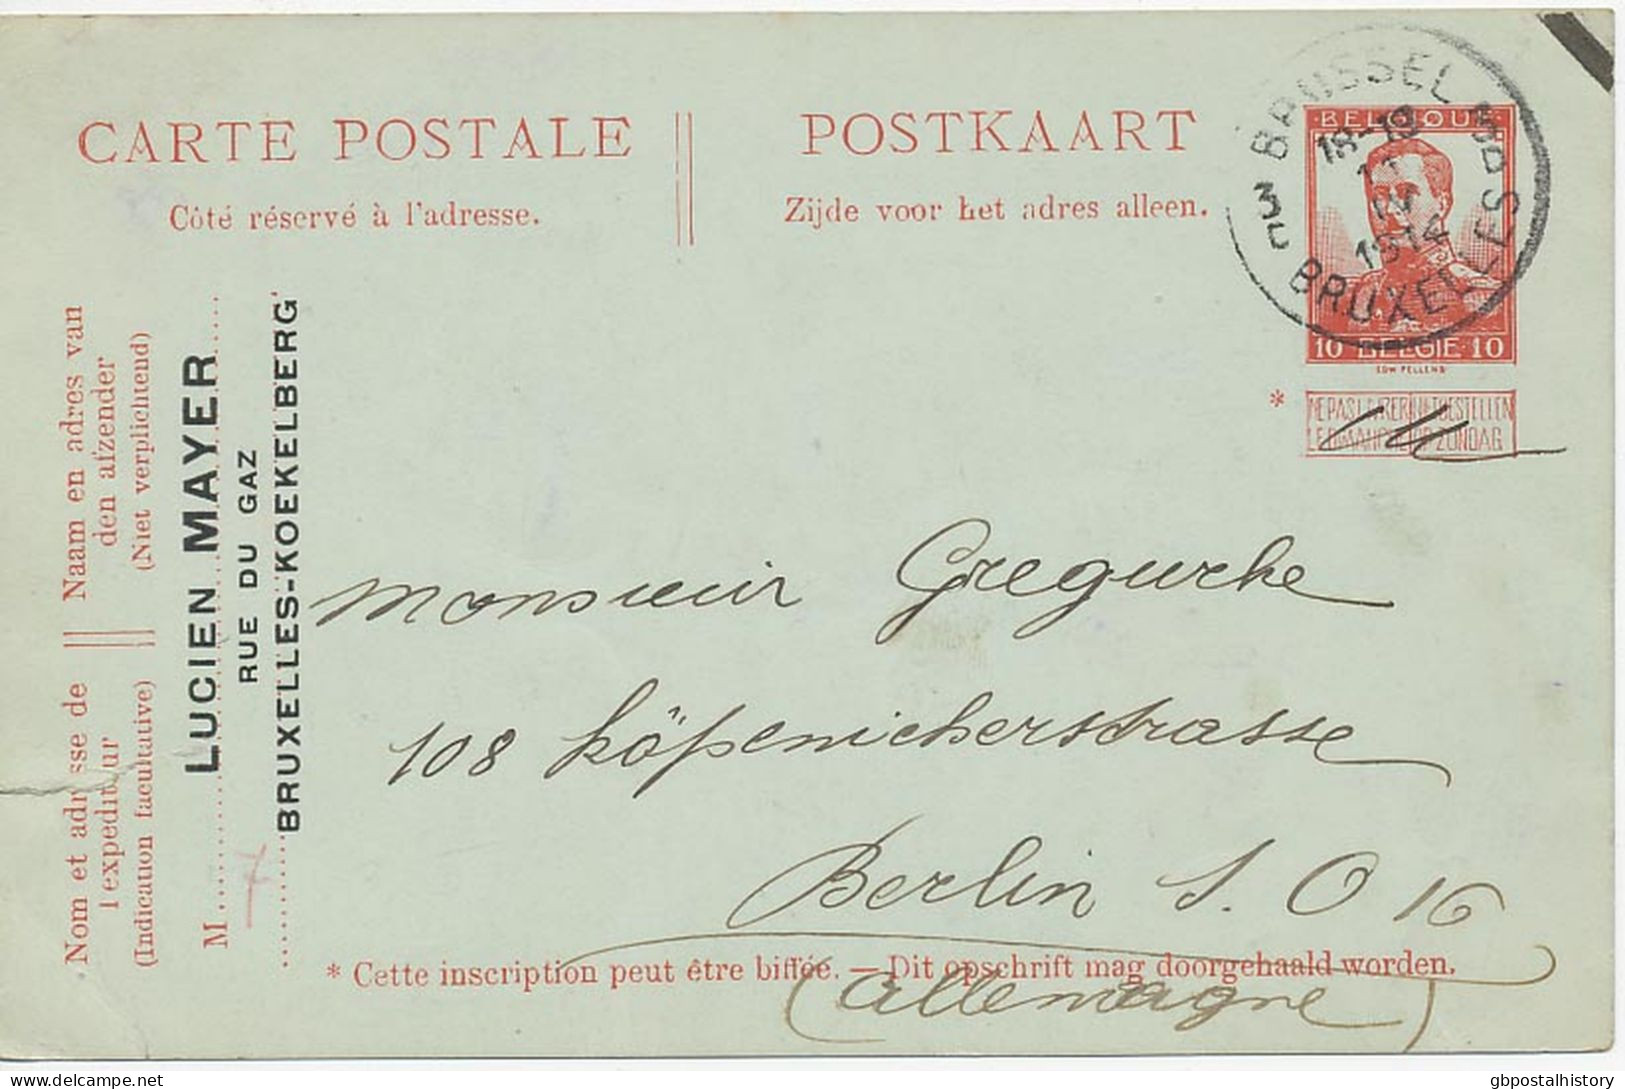 CARTE POSTALE POSTKAART
Côté réservé à l'adresse. Zijde voor het adres alleen.
BRUSSEL
18-19
11
IV
1914
BRUXELLES
3
BELGIQUE
10 BELGIE 10
EDW PELLENS
*
NE PAS LIVRER NIET BESTELLEN
LE DIMANCHE OP ZONDAG
Naam en adres van
den afzender
(Niet verplichtend)
Nom et adresse de
l'expéditeur
(Indication facultative)
M
LUCIEN MAYER
RUE DU GAZ
BRUXELLES-KOEKELBERG
7
Monsieur Gregurke
108 Köpenickerstrasse
Berlin S.O 16
(Allemagne)
* Cette inscription peut être biffée. — Dit opschrift mag doorgehaald worden.
gbpostalhistory